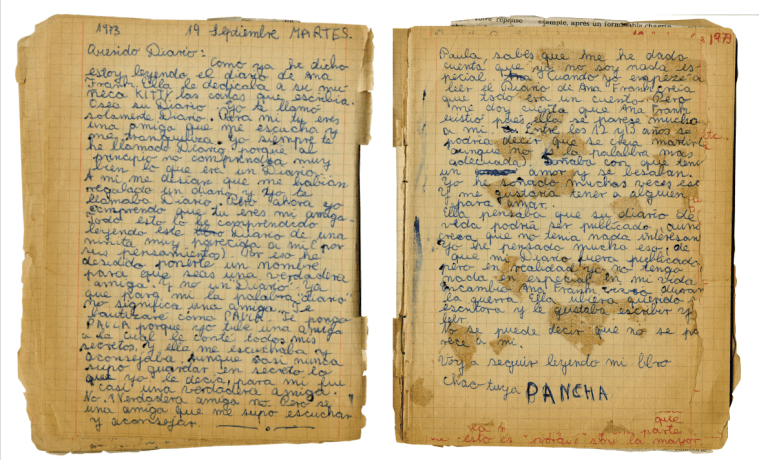 1973 19 Septiembre MARTES.
Querido Diario:
Como ya he dicho
estoy leyendo el diario de Ana
Frank. Ella le dedicaba a su mu
ñeca KITTY las cartas que escribía.
Osea su Diario. Yo te llamo
solamente Diario. Para mi tu eres
una amiga que me escucha y
me tranquiliza. Yo siempre te
he llamado Diario, porque al
principio no comprendia muy
bien lo que era un Diario.
A mi me decian que me habian
regalado un diario y yo te
llamaba Diario. Pero ahora yo
comprendo que tu eres mi amiga.
todo esto lo he comprendido
leyendo este Diario de una
niñita muy parecida a mi (por
sus pensamientos). Por eso he
desidido ponerte un nombre
para que seas una verdadera
"amiga". Y no un Diario. Ya
que para mi la palabra "diario"
no significa una amiga. Te
bautizare cómo PAULA. Te pongo
PAULA porque yo tube una amiga
a la cual le conté todos mis
secretos. Y ella me escuchaba y
aconsejaba. Aunque casi nunca
supo guardar en secreto lo
que yo le decía, para mi fue
casi una verdadera amiga.
No. 1 Verdadera amiga no. Pero se
una amiga que me supo escuchar
y aconsejar.
votre réponse exemple, après un formidable
1973
Paula, sabes que me he dado
cuenta que ya no soy nada es-
pecial. Cuando yo empezé a
leer el Diario de Ana Frank creia
que todo era un cuento. Pero
me doy cuenta que Ana Frank
existió pues ella se parece mucho
a mi. Entre los 12 y 13 años se
podria decir que se creia
aunque no es la palabra mas
adecuada. Soñaba con que tenia
un amor y se besaban.
Yo he soñado muchas veces eso
Y me gustaria tener a alguien
para amar.
Ella pensaba que su diario de
vida podria ser publicado, aun
creia que no tenia nada interesan
yo he pensado mucho eso, de
que mi Diario fuera publicado,
pero en realidad yo no tengo
nada en especial en mi vida
encambio Ana Frank duran
la guerra. Ella ubiera querido
escritora y le gustaba escribir y
leer.
No se puede decir que no se pa
rece a mi.
Voy a seguir leyendo mi libro
Chao tuya PANCHA
que
parte
esto es sobre la mayor